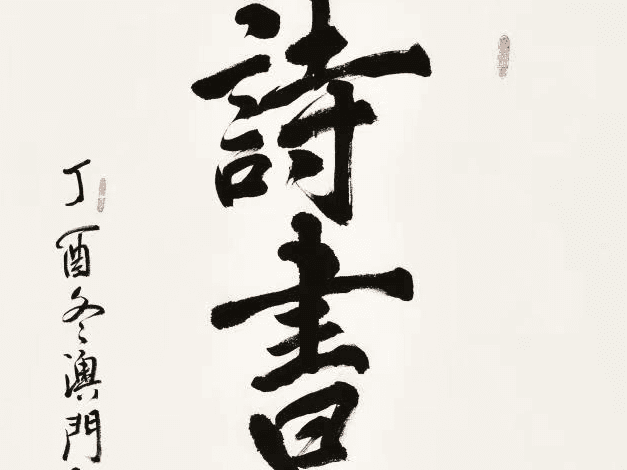 詩書
丁酉冬澳門